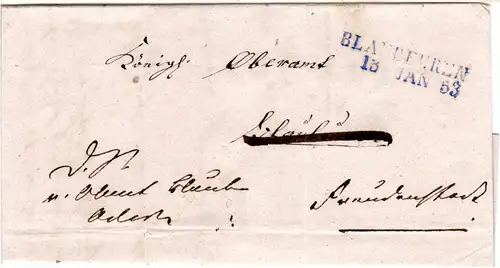 BLAUBEUREN
15 JAN 53
Königl. Oberamt
D. S.
v. Oberamt Blaub
Freudenstadt